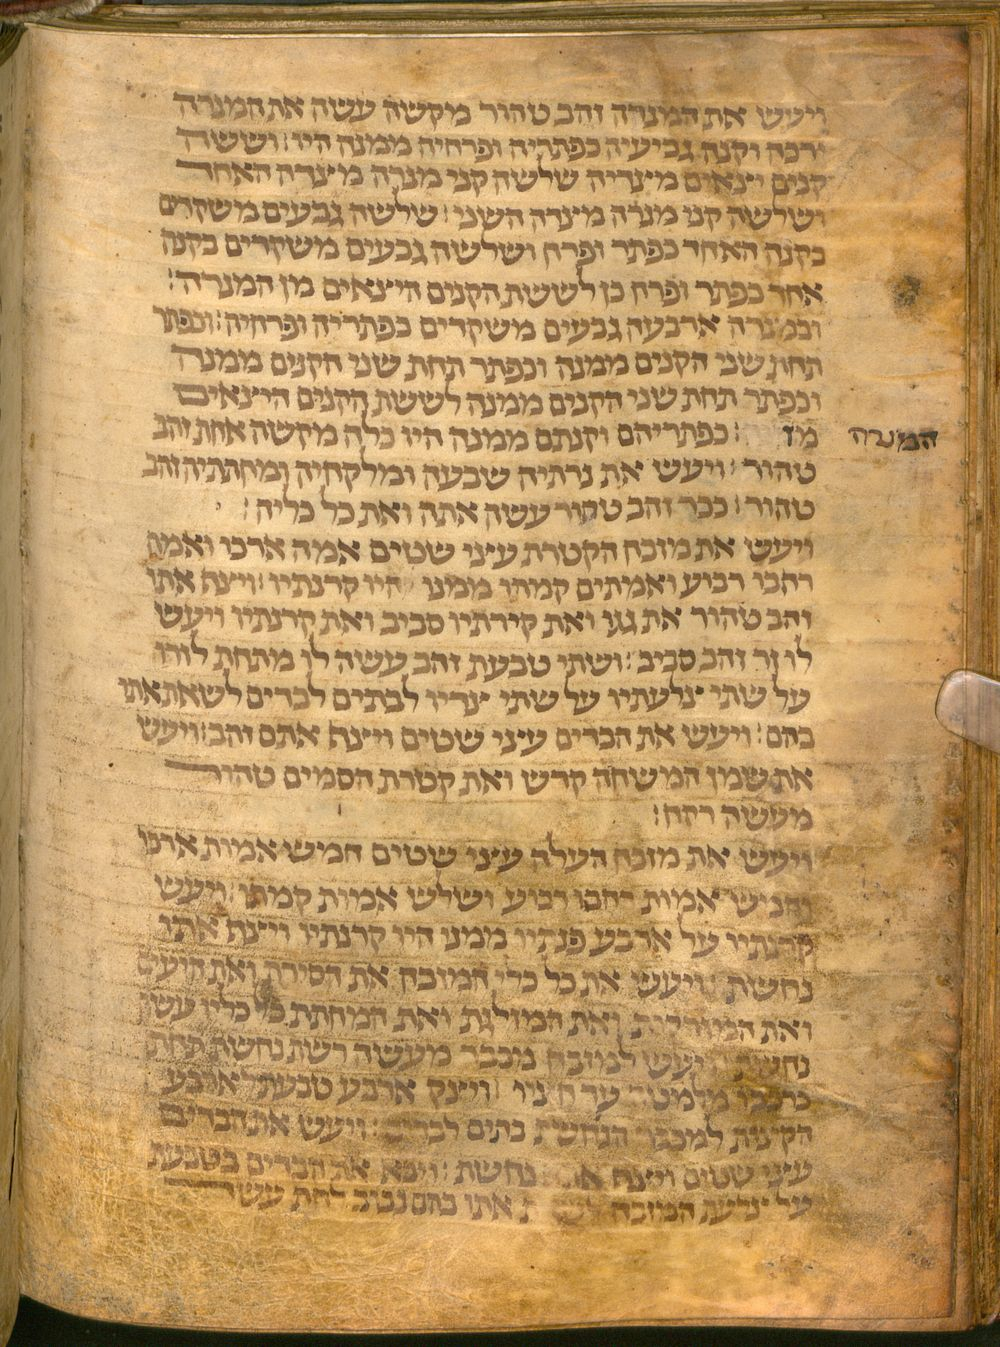 ויעש את המנרה זהב טהור מקשה עשה את המנרה
ירכה וקנה גביעיה כפתריה ופרחיה ממנה היו׃ וששה
קנים יצאים מצדיה שלשה קני מנרה מצדה האחד
ושלשה קני מנרה מצדה השני׃ שלשה גבעים משקדים
בקנה האחד כפתר ופרח ושלשה גבעים משקדים בקנה
אחד כפתר ופרח כן לששת הקנים היצאים מן המנרה׃
ובמנרה ארבעה גבעים משקדים כפתריה ופרחיה׃ וכפתר
תחת שני הקנים ממנה וכפתר תחת שני הקנים ממנה
וכפתר תחת שני הקנים ממנה לששת הקנים היצאים
׃ כפתריהם וקנתם ממנה היו כלה מקשה אחת זהב
המנרה
טהור׃ ויעש את נרתיה שבעה ומלקחיה ומחתתיה זהב
טהור׃ ככר זהב טהור עשה אתה ואת כל כליה׃
ויעש את מזבח הקטרת עצי שטים אמה ארכו ואמה
רחבו רבוע ואמתים קמתו ממנו היו קרנתיו׃ ויצף אתו
זהב טהור את גגו ואת קירתיו סביב ואת קרנתיו ויעש
לו זר זהב סביב׃ ושתי טבעת זהב עשה לו מתחת לזרו
על שתי צלעתיו על שתי צדיו לבתים לבדים לשאת אתו
בהם׃ ויעש את הבדים עצי שטים ויצף אתם זהב׃ ויעש
את שמן המשחה קדש ואת קטרת הסמים טהור
מעשה רקח׃
ויעש את מזבח העלה עצי שטים חמש אמות ארכו
וחמש אמות רחבו רבוע ושלש אמות קמתו׃ ויעש
קרנתיו על ארבע פנתיו ממנו היו קרנתיו ויצף אתו
נחשת׃ ויעש את כל כלי המזבח את הסירת ואת היעים
ואת המזרקות ואת המזלגת ואת המחתת כל כליו עשה
נחשת׃ ויעש למזבח מכבר מעשה רשת נחשת תחת
כרכבו מלמטה עד חציו׃ ויצק ארבע טבעת לארבע
הקצות למכבר הנחשת בתים לבדים׃ ויעש את הבדים
עצי שטים ויצף אתם נחשת׃ ויבא את הבדים בטבעת
על צלעת המזבח לשאת אתו בהם נבוב לחת עשה